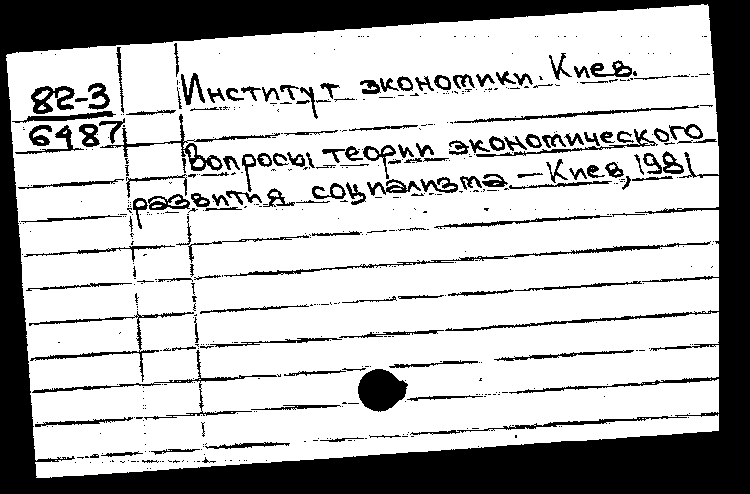 82-3
6487
Институт экономики. Киев.
Вопросы теории экономического
развития социализма — Киев, 1981